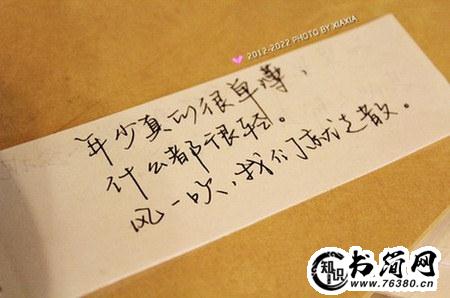 2012-2022 PHOTO BY XIAXIA
年少真的很单薄，
什么都很轻。
风一吹，我们就走散。
知识
书简网
www.76380.cn